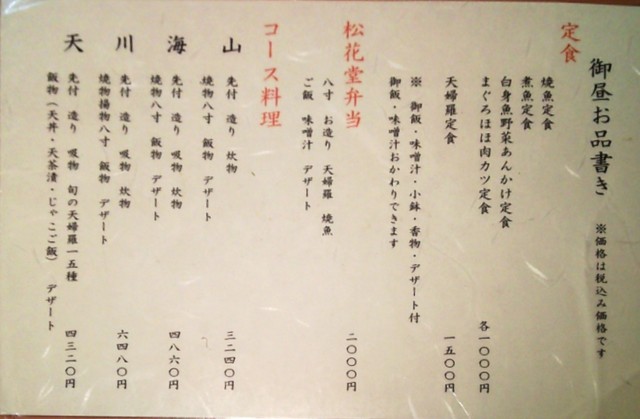 御昼お品書き ※価格は税込み価格です
定食
焼魚定食
煮魚定食
白身魚野菜あんかけ定食
まぐろほほ肉カツ定食 各一〇〇〇円
天婦羅定食 一五〇〇円
※ 御飯・味噌汁・小鉢・香物・デザート付
御飯・味噌汁おかわりできます
松花堂弁当 二〇〇〇円
八寸 お造り 天婦羅 焼魚
ご飯 味噌汁 デザート
コース料理
山 先付 造り 炊物 三二四〇円
焼物八寸 飯物 デザート
海 先付 造り 吸物 炊物 四八六〇円
焼物八寸 飯物 デザート
川 先付 造り 吸物 炊物 六四八〇円
焼物揚物八寸 飯物 デザート
天 先付 造り 吸物 旬の天婦羅一五種 四三二〇円
飯物(天丼・天茶漬・じゃこご飯) デザート